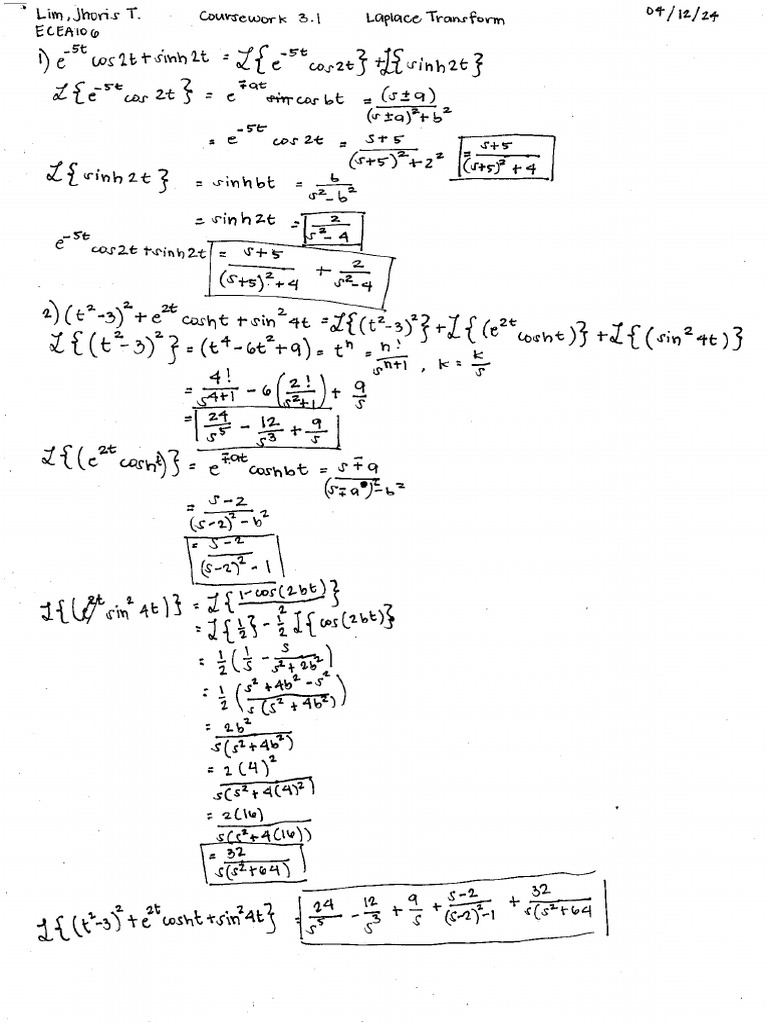 Lim, Jhoris T. Coursework 3.1 Laplace Transform 04/12/24
ECEA106
1) e^-5t cos2t + sinh2t = ℒ{e^-5t cos2t} + ℒ{sinh2t}
ℒ{e^-5t cos 2t} = e^∓at cosbt = (s±a)/((s±a)^2+b^2)
= e^-5t cos 2t = s+5/((s+5)^2+2^2) = s+5/((s+5)^2+4)
ℒ{sinh2t} = sinhbt = b/(s^2-b^2)
= sinh2t = 2/(s^2-4)
e^-5t cos2t + sinh2t = s+5/((s+5)^2+4) + 2/(s^2-4)
2) (t^2-3)^2 + e^2t cosht + sin^2 4t = ℒ{(t^2-3)^2} + ℒ{(e^2t cosht)} + ℒ{(sin^2 4t)}
ℒ{(t^2-3)^2} = (t^4-6t^2+9) = t^n = n!/s^n+1, k = k/s
= 4!/s^4+1 - 6(2!/s^2+1) + 9/s
= 24/s^5 - 12/s^3 + 9/s
ℒ{(e^2t cosht)} = e^∓at coshbt = s∓a/((s∓a)^2-b^2)
= s-2/((s-2)^2-b^2)
= s-2/((s-2)^2-1)
ℒ{(sin^2 4t)} = ℒ{1-cos(2bt)/2}
= ℒ{1/2} - 1/2 ℒ{cos(2bt)}
= 1/2(1/s - s/(s^2+2b^2))
= 1/2(s^2+4b^2-s^2/(s(s^2+4b^2)))
= 2b^2/(s(s^2+4b^2))
= 2(4)^2/(s(s^2+4(4)^2))
= 2(16)/(s(s^2+4(16)))
= 32/(s(s^2+64))
ℒ{(t^2-3)^2 + e^2t cosht + sin^2 4t} = 24/s^5 - 12/s^3 + 9/s + s-2/((s-2)^2-1) + 32/(s(s^2+64